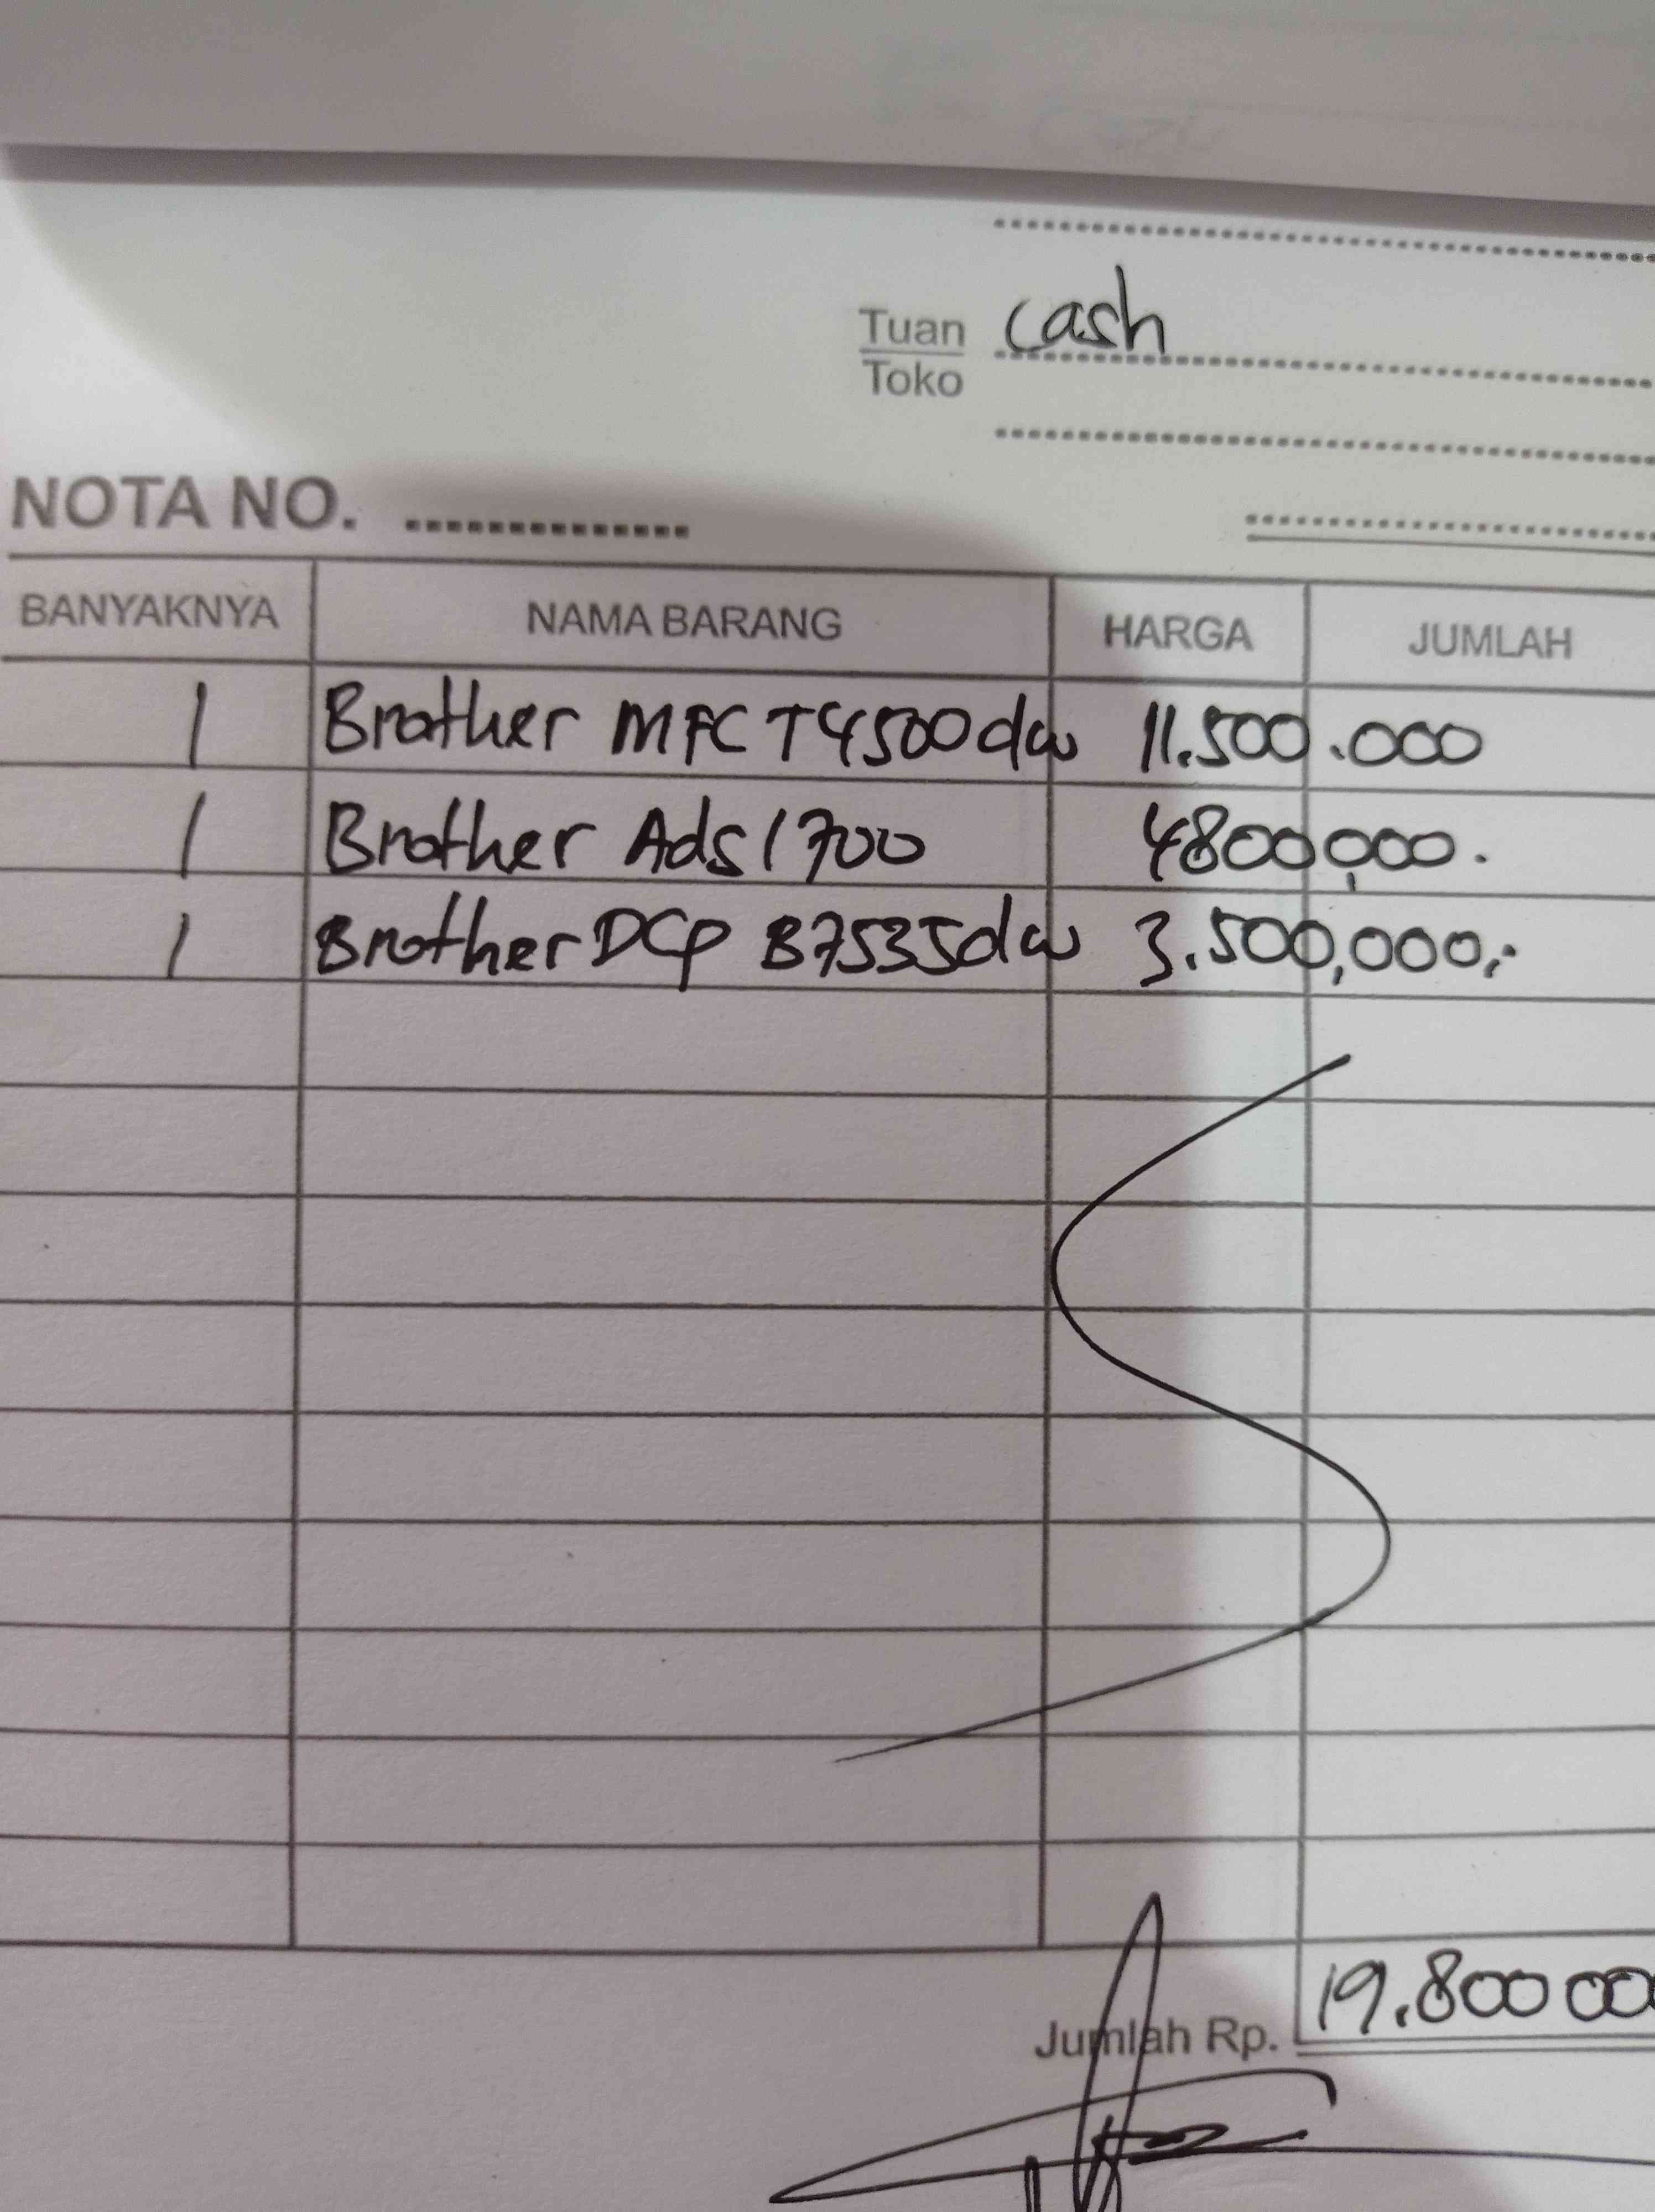 Tuan cash
Toko
NOTA NO. ..............
BANYAKNYA NAMA BARANG HARGA JUMLAH
1 Brother MFC T4500dw 11.500.000
1 Brother Ads1700 4800,000.
1 Brother DCP B7535dw 3.500,000,-
Jumlah Rp. 19.800 000